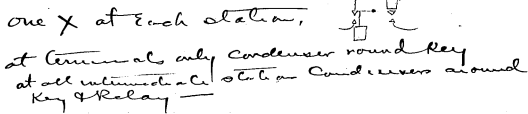 one X at Each station,
at terminals only condenser round Key
at all intermediate station Condensers around
Key & Relay —